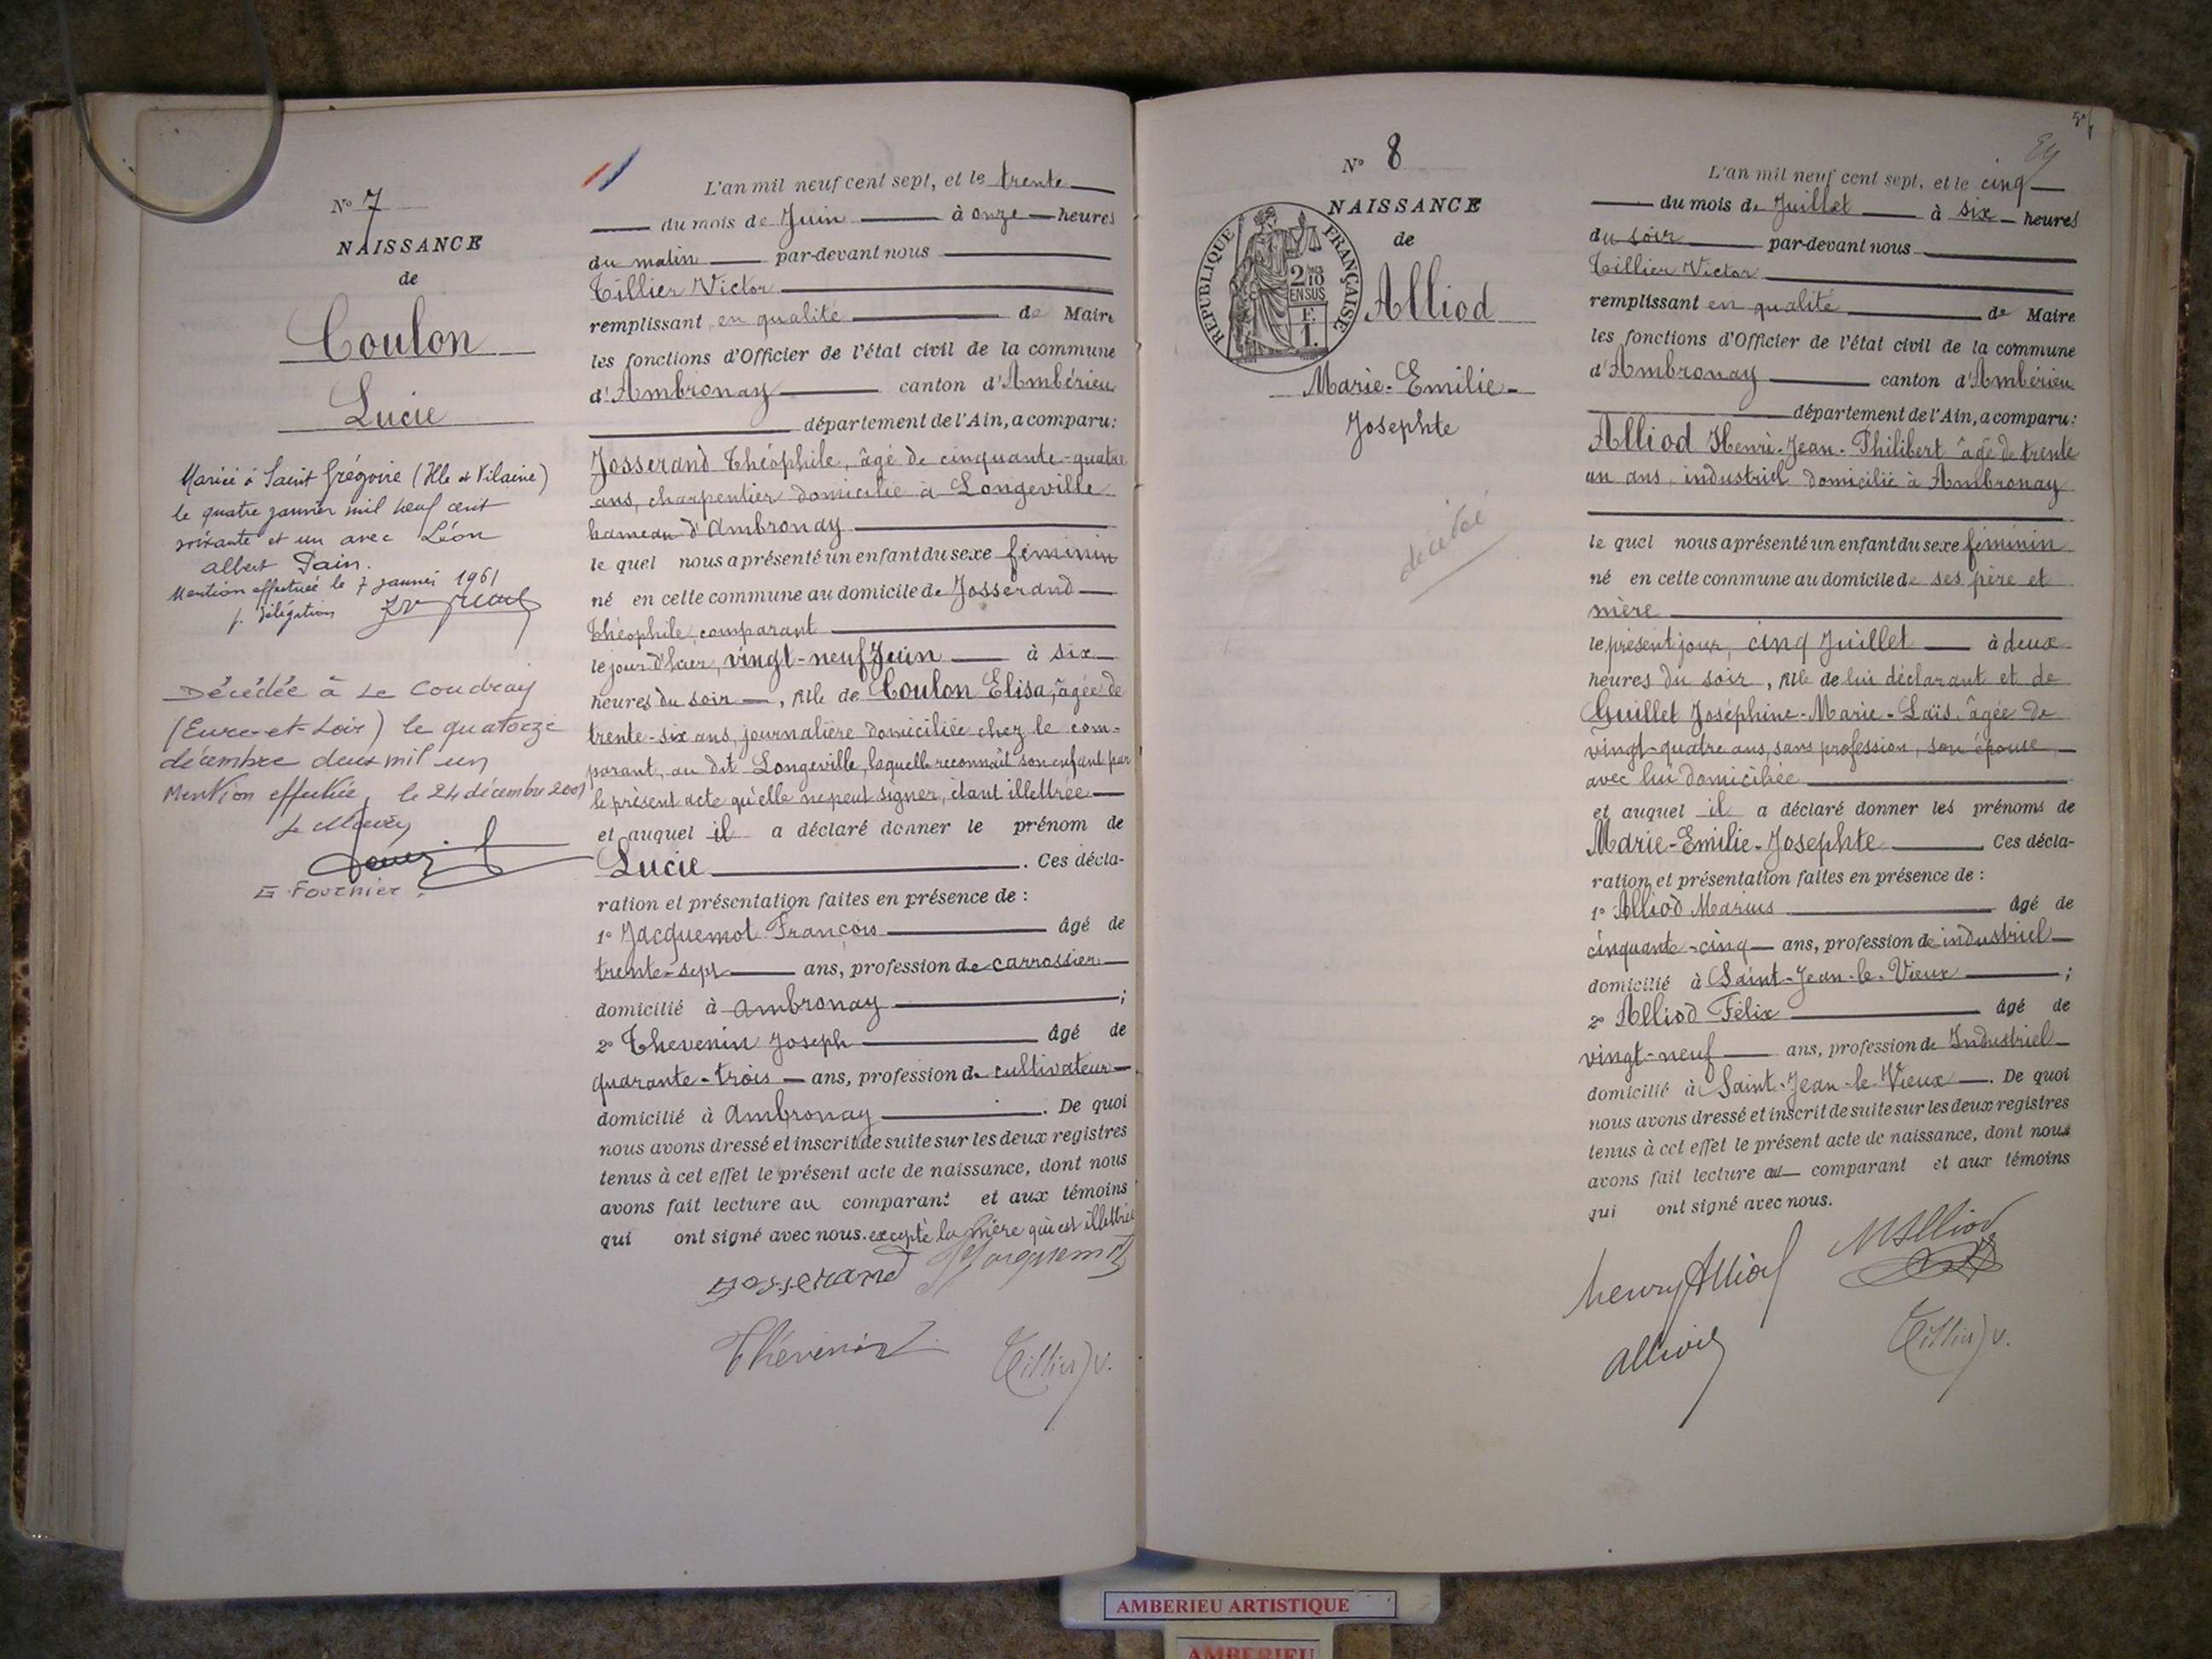 N° 7
NAISSANCE
de
Coulon
Lucie
Mariée à Saint Grégoire (Ille et Vilaine)
le quatre janvier mil neuf cent
soixante et un avec Léon
albert Pain.
Mention effectuée le 7 janvier 1961
p. délégation
Décédée à Le Coudray
(Eure-et-Loir) le quatorze
décembre deux mil un
Mention effectuée, le 24 décembre 2001
Le Maire,
G Fournier.
L'an mil neuf cent sept, et le trente
du mois de Juin à onze heures
du matin par-devant nous
Tillier Victor
remplissant en qualité de Maire
les fonctions d'Officier de l'état civil de la commune
d'Ambronay canton d'Ambérieu
département de l'Ain, a comparu:
Josserand Théophile, âgé de cinquante-quatre
ans, charpentier domicilié à Longeville
hameau d'Ambronay
le quel nous a présenté un enfant du sexe féminin
né en cette commune au domicile de Josserand
Théophile, comparant
le jour d'hier, vingt-neuf Juin à six
heures du soir, fille de Coulon Elisa, âgée de
trente-six ans, journalière domiciliée chez le com-
parant, au dit Longeville, laquelle reconnaît son enfant par
le présent acte qu'elle ne peut signer, étant illettrée
et auquel il a déclaré donner le prénom de
Lucie. Ces décla-
ration et présentation faites en présence de :
1° Jacquemot François âgé de
trente-sept ans, profession de carrossier
domicilié à Ambronay ;
2° Thevenin Joseph âgé de
quarante-trois ans, profession de cultivateur
domicilié à Ambronay. De quoi
nous avons dressé et inscrit de suite sur les deux registres
tenus à cet effet le présent acte de naissance, dont nous
avons fait lecture au comparant et aux témoins
qui ont signé avec nous. excepté la mère qui est illettrée
Josserand Jacquemot
Thévenin Tillier V.
N° 8
NAISSANCE
de
RÉPUBLIQUE FRANÇAISE
2/10
EN SUS
F.
1.
Alliod
Marie-Emilie-
Josephte
décédée
L'an mil neuf cent sept, et le cinq
du mois de Juillet à six heures
du soir par-devant nous
Tillier Victor
remplissant en qualité de Maire
les fonctions d'Officier de l'état civil de la commune
d'Ambronay canton d'Ambérieu
département de l'Ain, a comparu:
Alliod Henri-Jean-Philibert âgé de trente
un ans, industriel domicilié à Ambronay
le quel nous a présenté un enfant du sexe féminin
né en cette commune au domicile de ses père et
mère
le présent jour, cinq Juillet à deux
heures du soir, fille de lui déclarant et de
Guillet Joséphine-Marie-Laïs, âgée de
vingt-quatre ans, sans profession, son épouse,
avec lui domiciliée
et auquel il a déclaré donner les prénoms de
Marie-Emilie-Josephte Ces décla-
ration et présentation faites en présence de :
1° Alliod Marius âgé de
cinquante-cinq ans, profession de industriel
domicilié à Saint-Jean-le-Vieux ;
2° Alliod Félix âgé de
vingt-neuf ans, profession de Industriel
domicilié à Saint-Jean-le-Vieux. De quoi
nous avons dressé et inscrit de suite sur les deux registres
tenus à cet effet le présent acte de naissance, dont nous
avons fait lecture au comparant et aux témoins
qui ont signé avec nous.
henry Alliod M Alliod
Alliod Tillier V.
AMBERIEU ARTISTIQUE
AMBERIEU